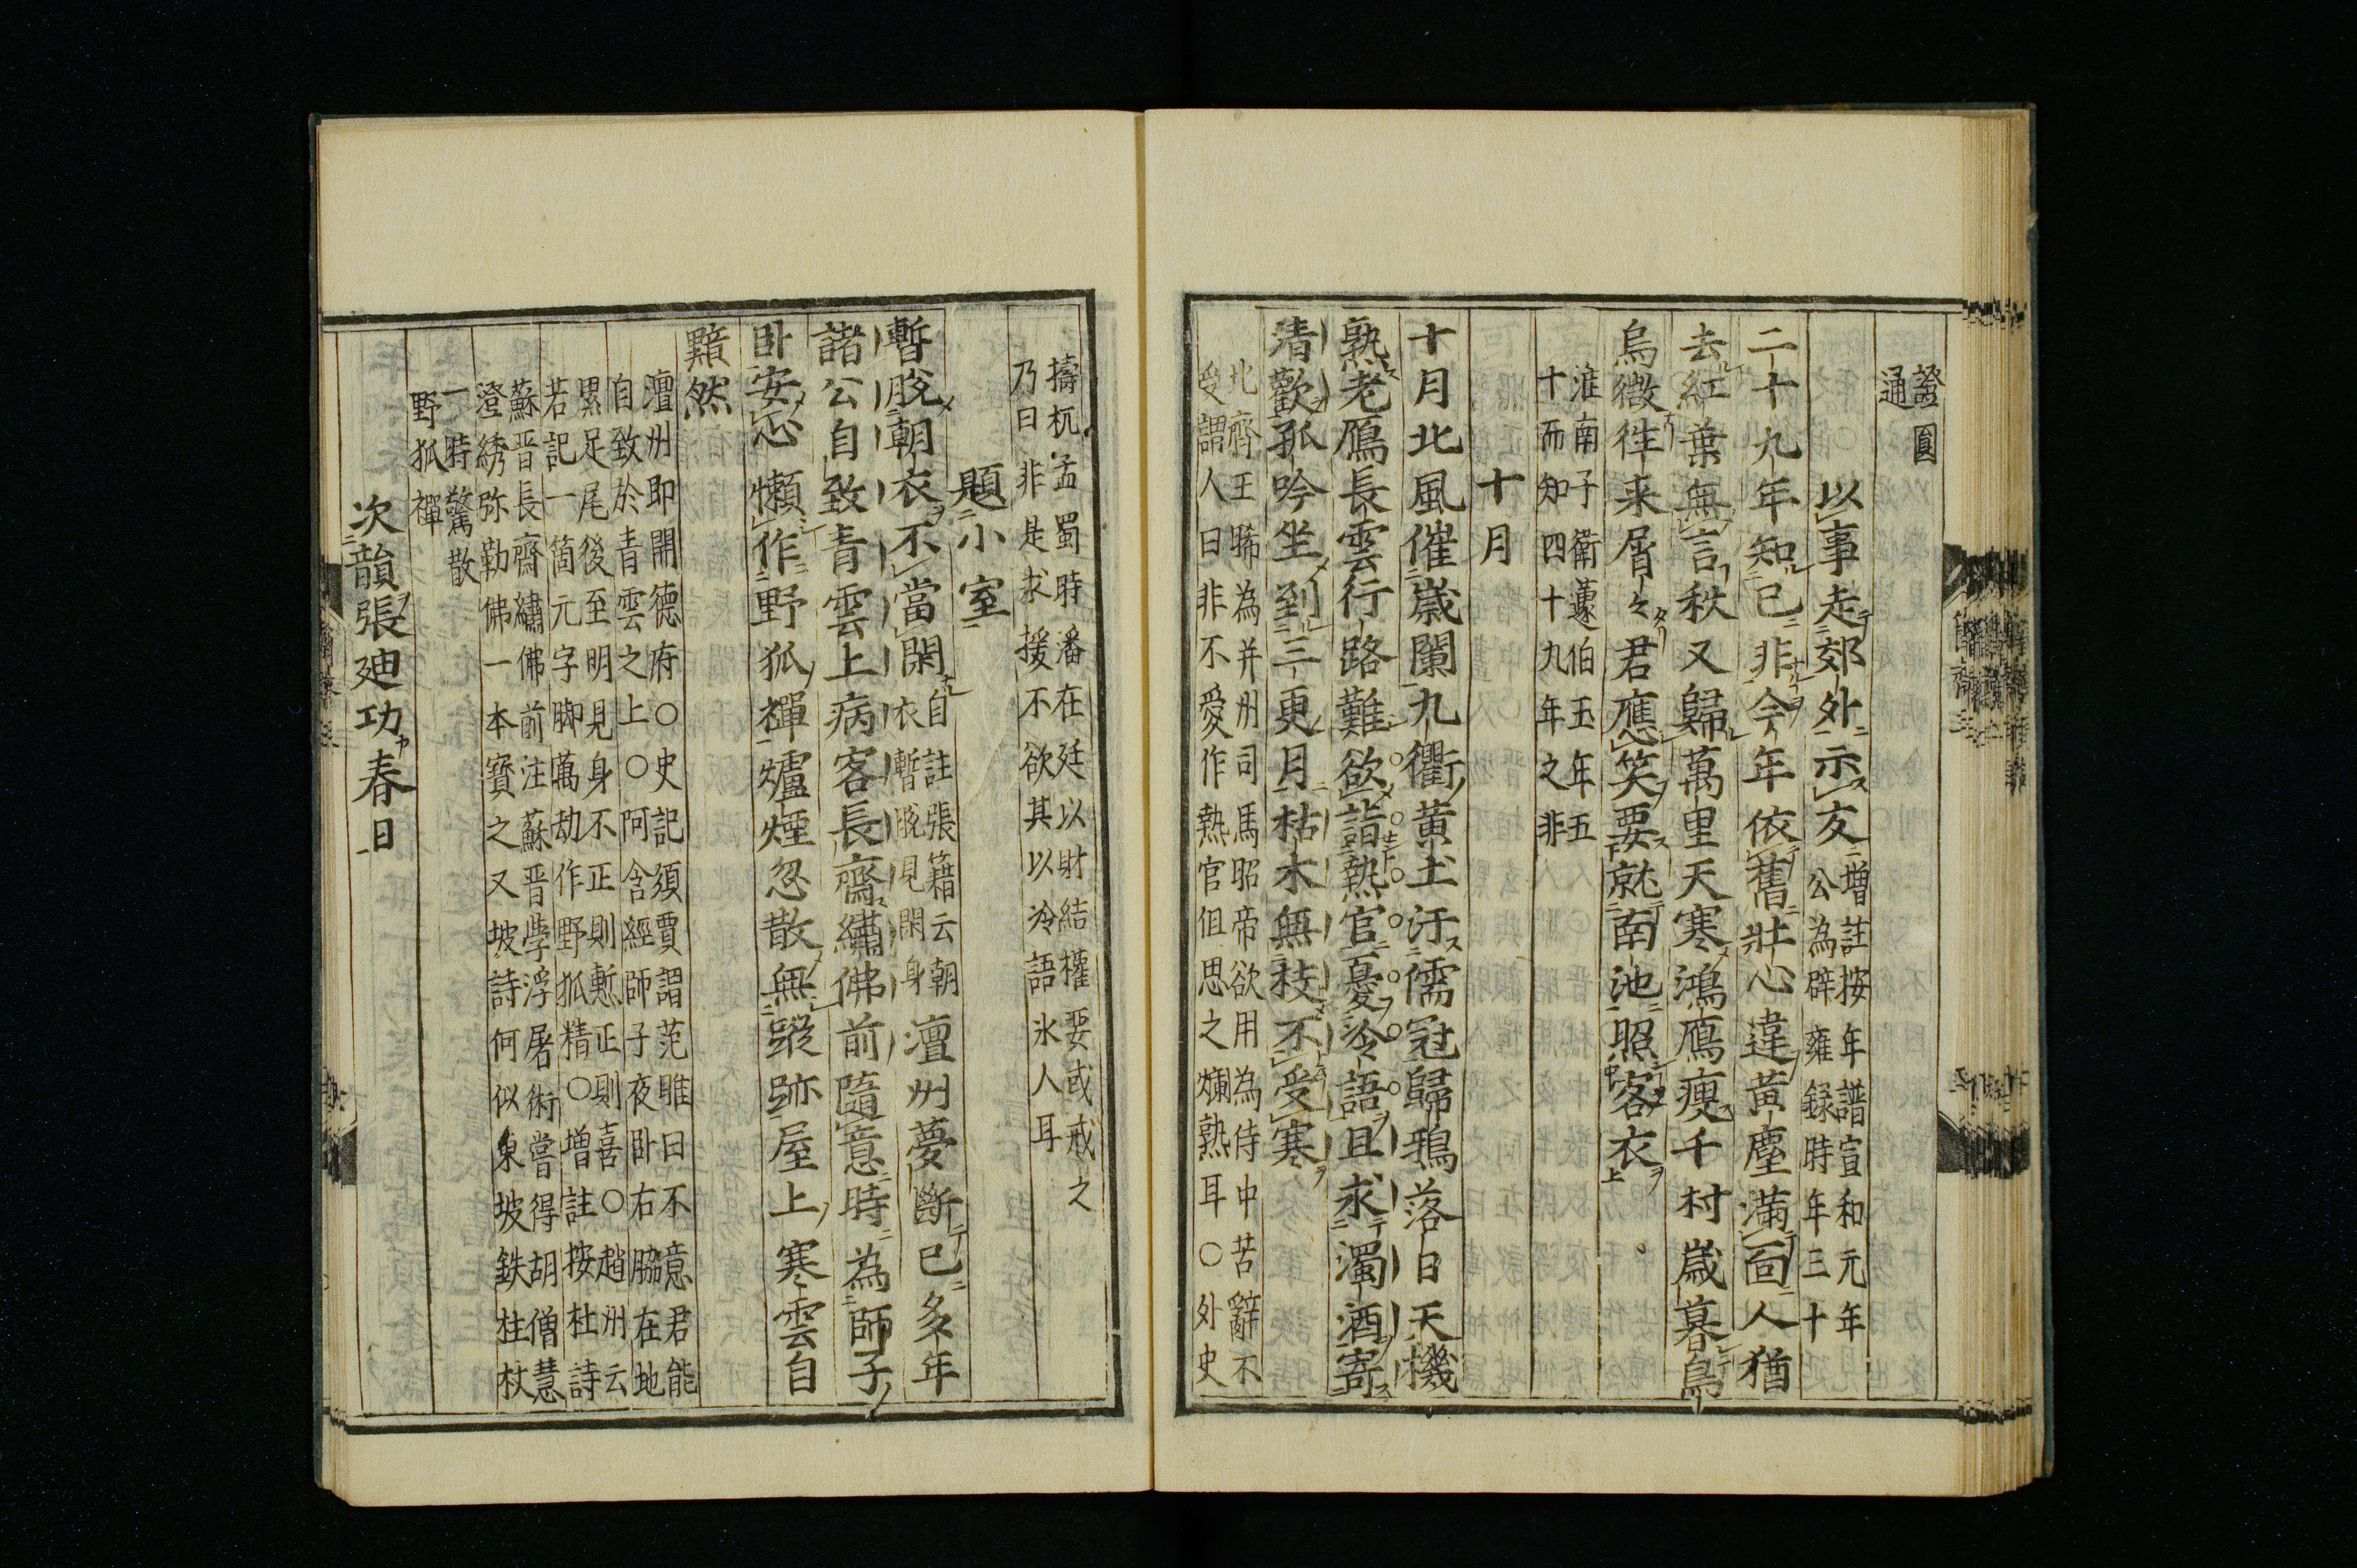 證圓
通
以事走郊外示友
增註按年譜宣和元年
公為辟雍録時年三十
二十九年知已非今年依舊壯心違黃塵滿面人猶
去紅葉無言秋又歸萬里天寒鴻鴈瘦千村歲暮鳥
烏微徃来屑々君應笑要就南池照客衣
淮南子衛蘧伯玉年五
十而知四十九年之非
十月
十月北風催歲闌九衢黃土汙儒冠歸鴉落日天機
熟老鴈長雲行路難欲詣熱官憂冷語且求濁酒寄
清歡孤吟坐到三更月枯木無枝不受寒
北齊王晞為并州司馬昭帝欲用為侍中苦辭不
受謂人曰非不愛作熱官但思之爛熟耳○外史
擣杌孟蜀時潘在廷以財結權要或戒之
乃曰非是求援不欲其以冷語氷人耳
題小室
暫脫朝衣不當閑
自註張籍云朝
衣暫脫見閑身
澶州夢斷已多年
諸公自致青雲上病客長齋繡佛前隨意時為師子
卧安心懶作野狐禪爐煙忽散無蹤跡屋上寒雲自
黯然
澶州即開德府○史記須賈謂范睢曰不意君能
自致於青雲之上○阿含經師子夜卧右脇在地
累足尾後至明見身不正則慙正則喜○趙州云
若記一箇元字脚萬劫作野狐精○增註按杜詩
蘇晋長齋繡佛前注蘇晋學浮屠術嘗得胡僧慧
澄綉弥勒佛一本寳之又坡詩何似東坡鉄柱杖
一時驚散
野狐禪
次韻張廸功春日